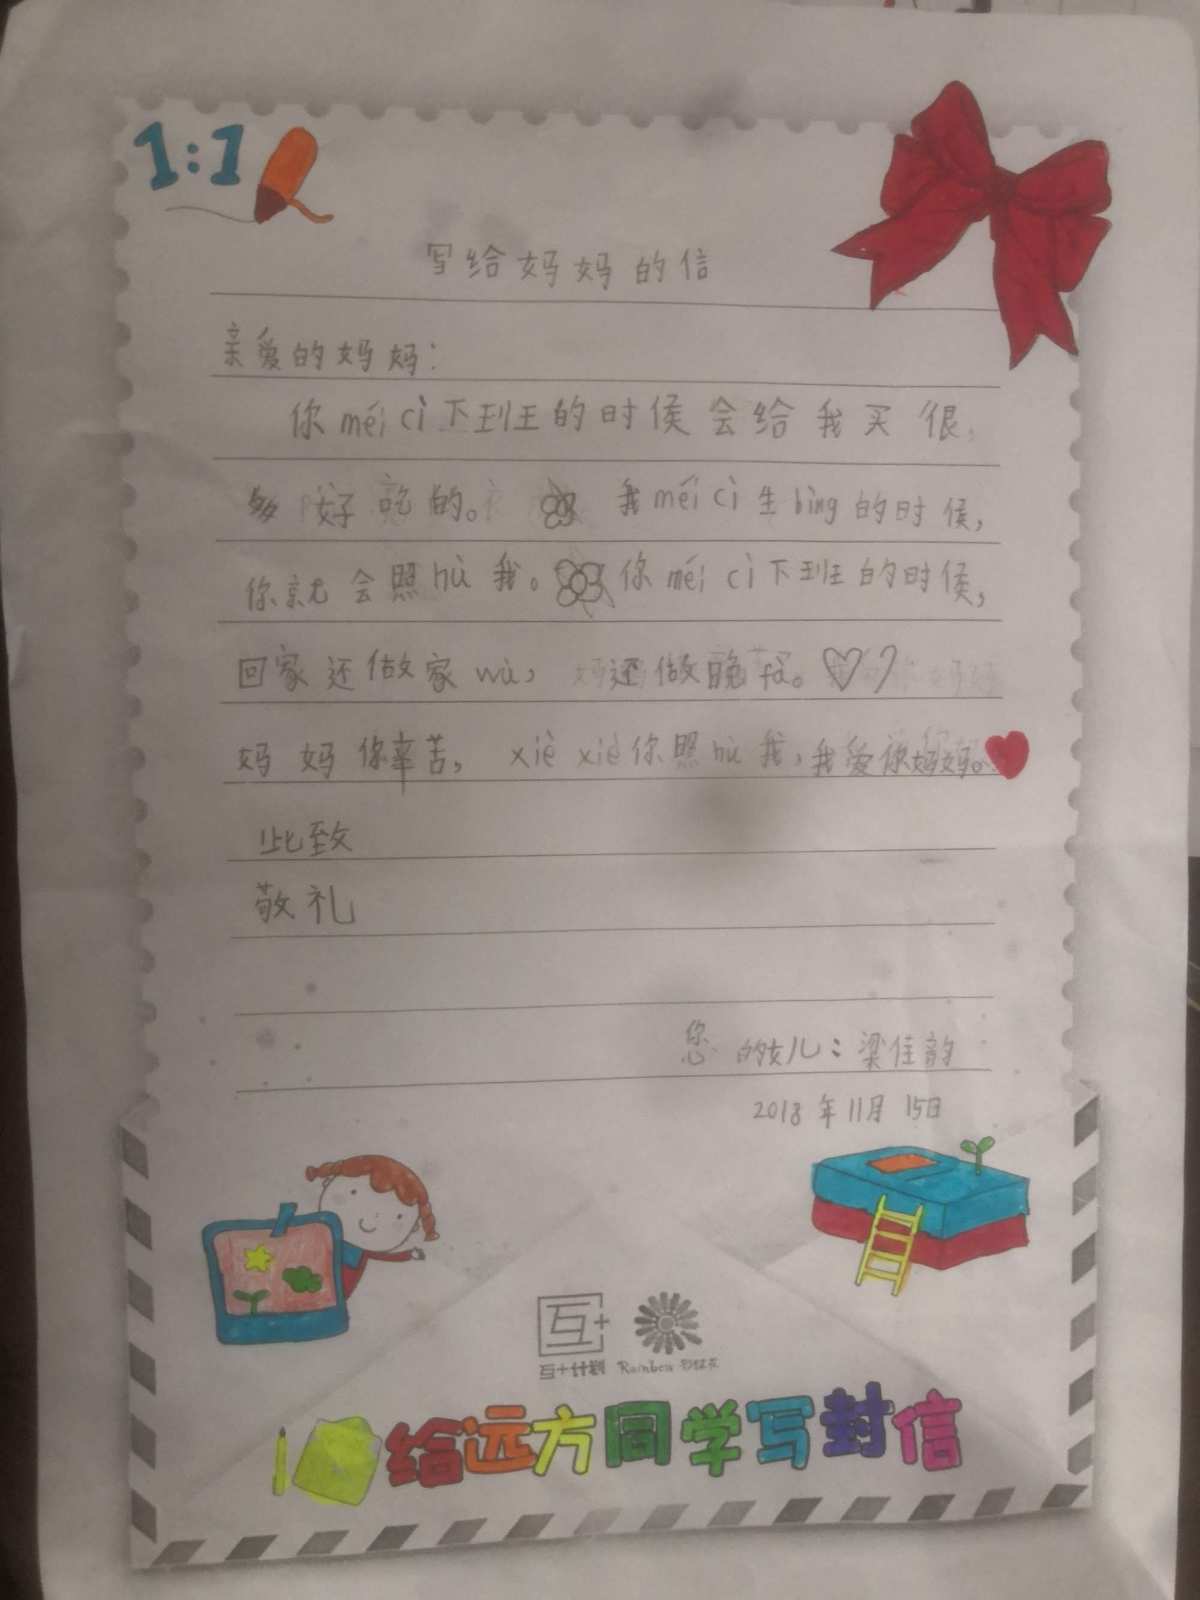 1:1
写给妈妈的信
亲爱的妈妈：
你méi cì下班的时候会给我买很
多好吃的。我méi cì生bìng的时候，
你就会照hù我。你méi cì下班的时候，
回家还做家wù，还做晚fà。
妈妈你辛苦，xiè xiè你照hù我，我爱你妈妈。
此致
敬礼
您的女儿：梁佳韵
2018年11月15日
互+
互+计划 Rainbow
给远方同学写封信